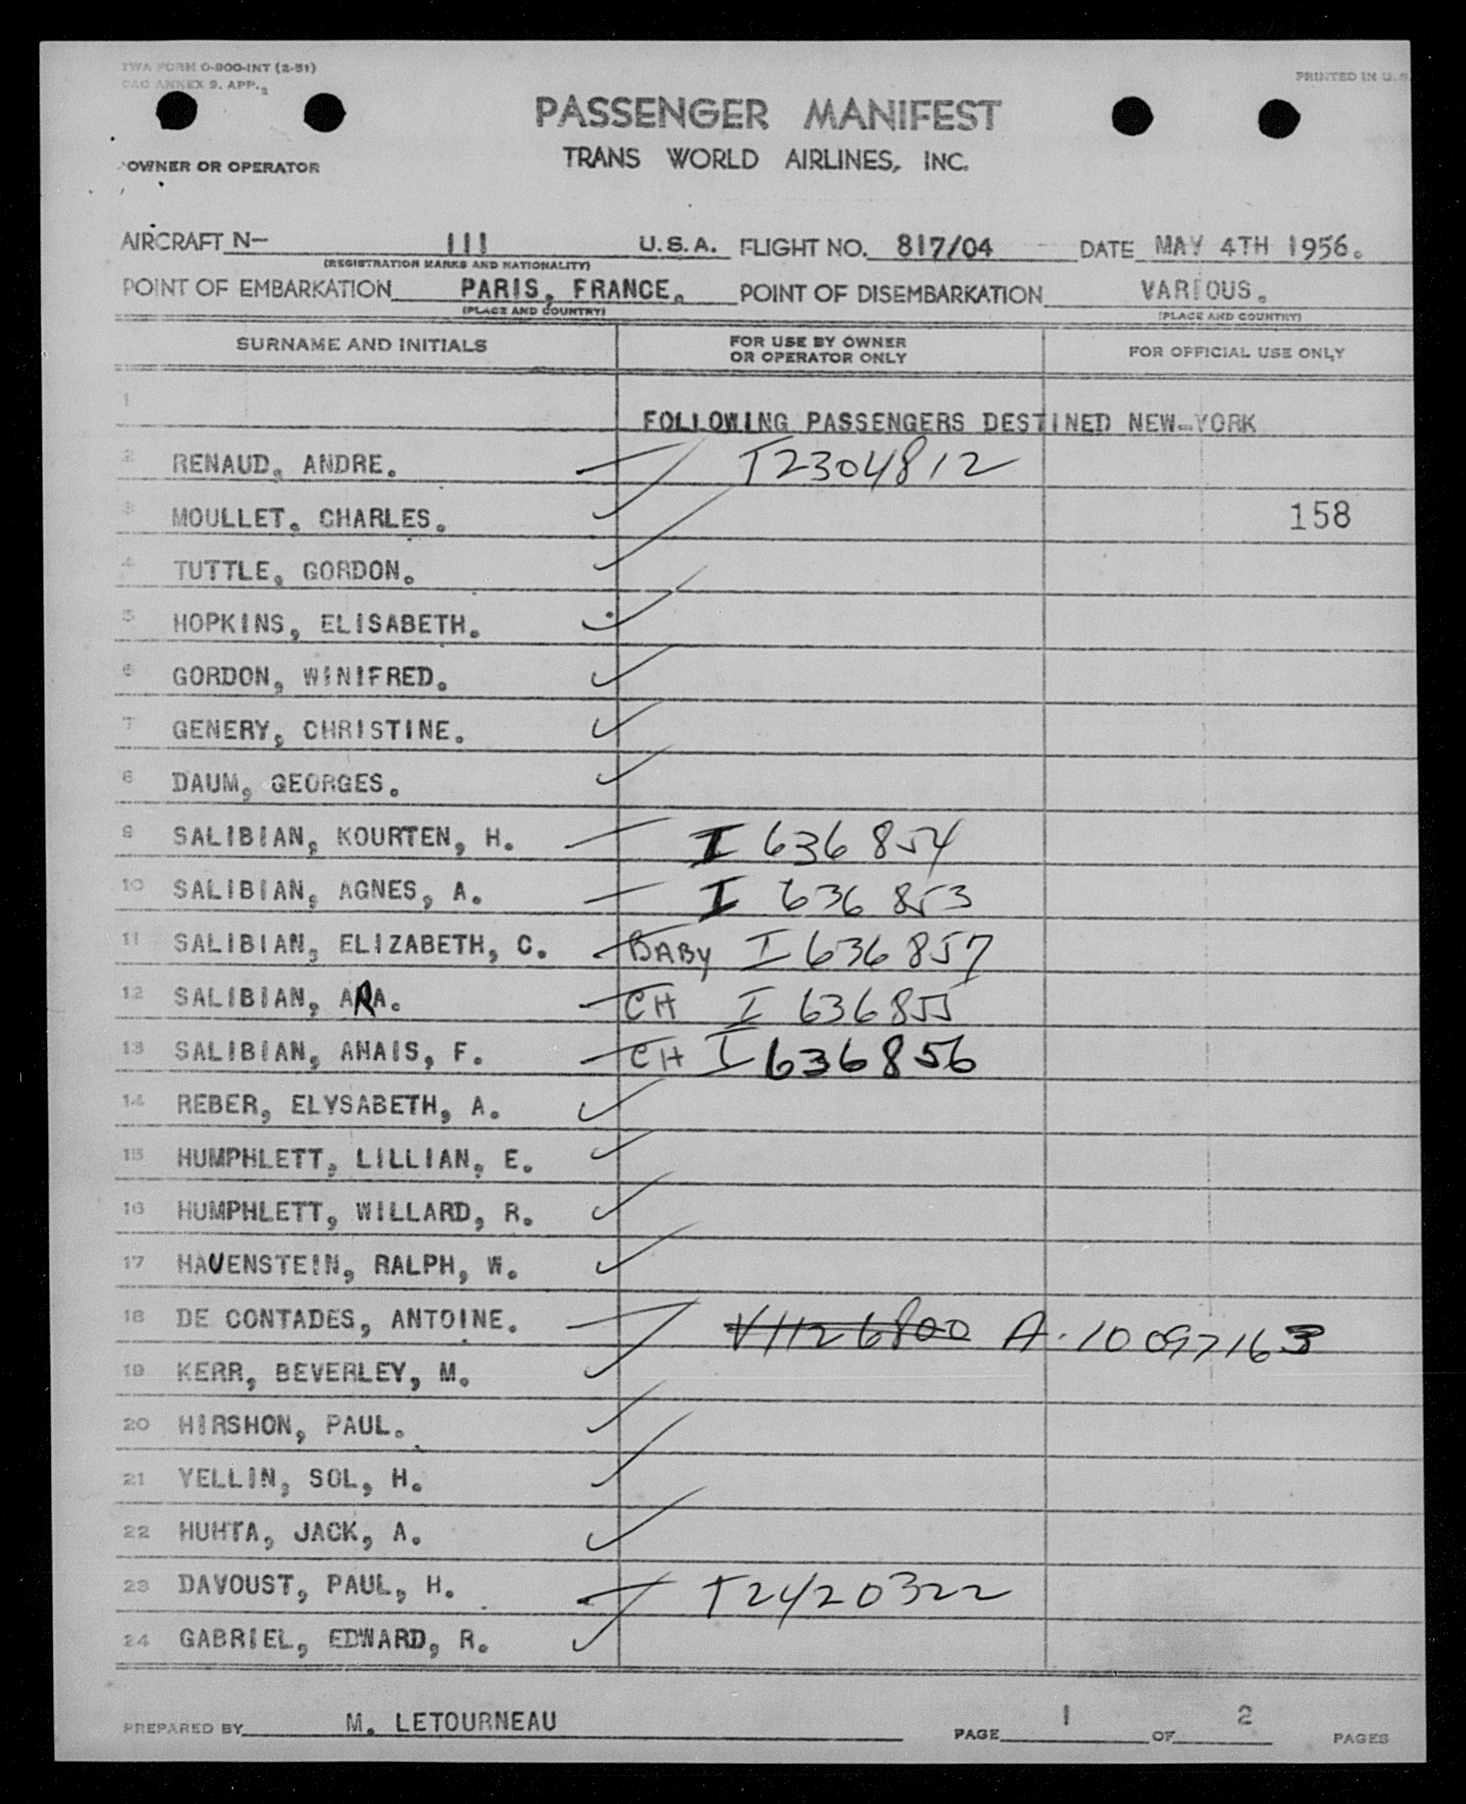 TWA FORM O-800-INT (2-51)
CAO ANNEX 9. APP. 2
PRINTED IN U.S.
PASSENGER MANIFEST
TRANS WORLD AIRLINES, INC.
OWNER OR OPERATOR
AIRCRAFT N- 111 U.S.A. FLIGHT NO. 817/04 DATE MAY 4TH 1956.
(REGISTRATION MARKS AND NATIONALITY)
POINT OF EMBARKATION PARIS, FRANCE. POINT OF DISEMBARKATION VARIOUS.
(PLACE AND COUNTRY) (PLACE AND COUNTRY)
SURNAME AND INITIALS FOR USE BY OWNER OR OPERATOR ONLY FOR OFFICIAL USE ONLY
1 FOLLOWING PASSENGERS DESTINED NEW-YORK
2 RENAUD, ANDRE. T2304812
3 MOULLET, CHARLES. 158
4 TUTTLE, GORDON.
5 HOPKINS, ELISABETH.
6 GORDON, WINIFRED.
7 GENERY, CHRISTINE.
8 DAUM, GEORGES.
9 SALIBIAN, KOURTEN, H. I 636854
10 SALIBIAN, AGNES, A. I 636853
11 SALIBIAN, ELIZABETH, C. BABY I 636857
12 SALIBIAN, ARA. CH I 636855
13 SALIBIAN, ANAIS, F. CH I 636856
14 REBER, ELYSABETH, A.
15 HUMPHLETT, LILLIAN, E.
16 HUMPHLETT, WILLARD, R.
17 HAUENSTEIN, RALPH, W.
18 DE CONTADES, ANTOINE. V1126800 A-10097163
19 KERR, BEVERLEY, M.
20 HIRSHON, PAUL.
21 YELLIN, SOL, H.
22 HUHTA, JACK, A.
23 DAVOUST, PAUL, H. T2420322
24 GABRIEL, EDWARD, R.
PREPARED BY M. LETOURNEAU PAGE 1 OF 2 PAGES